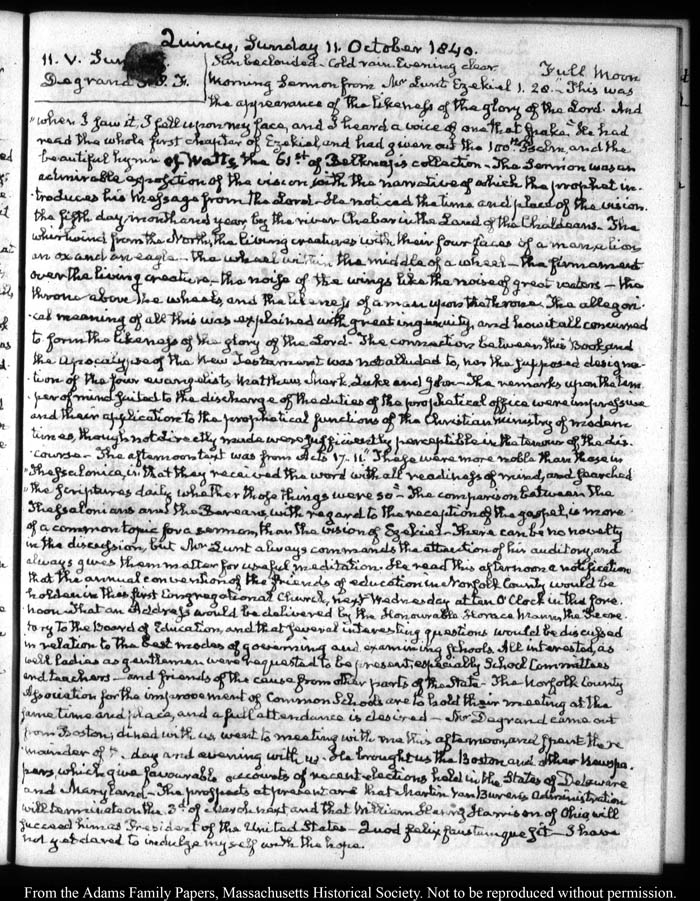 Quincy, Sunday 11 October 1840.
11. V. Sun
Degrand P. P. F.
Sun beclouded - Cold rain Evening clear Full Moon
Morning Sermon from Mr Lunt Ezekiel 1. 28. - This was
the appearance of the likeness of the glory of the Lord. And
"when I saw it, I fell upon my face, and I heard a voice of one that spake." He had
read the whole first chapter of Ezekiel and had given out the 100th Psalm, and the
beautiful hymn of Watts, the 61st of Belknap's collection - The Sermon was an
admirable exposition of the vision with the narrative of which the prophet in-
troduces his Message from the Lord - He noticed the time and place of the vision
the fifth day, month and year, by the river Chebar in the Land of the Chaldeans. The
whirlwind from the North, the living creatures with their four faces of a man, a lion
an ox and an eagle - the wheel within the middle of a wheel - the firmament
over the living creature, - the noise of the wings like the noise of great waters - the
throne above the wheels, and the likeness of a man upon the throne. The allegori-
cal meaning of all this was explained with great ingenuity, and how it all concurred
to form the likeness of the glory of the Lord - The connection between this Book and
the Apocalypse of the New Testament was not alluded to, nor the supposed designa-
tion of the four evangelists Matthew, Mark, Luke and John - The remarks upon the tem-
per of mind suited to the discharge of the duties of the prophetical office were impressive
and their application to the prophetical functions of the Christian ministry of modern
times, though not directly made were sufficiently perceptible in the tenour of the dis-
course - The afternoon text was from Acts 17. 11. These were more noble than those in
"Thessalonica, in that they received the word with all readiness of mind, and searched
"the scriptures daily, whether those things were so" - The comparison between the
Thessalonians and the Bereans, with regard to the reception of the gospel, is more
of a common topic for a sermon, than the vision of Ezekiel - There can be no novelty
in the discussion, but Mr Lunt always commands the attention of his auditory, and
always gives them matter for useful meditation. He read this afternoon a notification
that the annual convention of the friends of education in Norfolk County would be
holden in this first Congregational Church, next Wednesday at ten O'Clock in the fore-
noon - That an Address would be delivered by the Honourable Horace Mann, the Secre-
tary to the Board of Education, and that several interesting questions would be discussed
in relation to the best modes of governing and examining schools. All interested, as
well ladies as gentlemen were requested to be present, especially School Committees
and teachers - and friends of the cause from other parts of the State - The Norfolk County
Association for the improvement of Common Schools are to hold their meeting at the
same time and place, and a full attendance is desired - Mr Degrand came out
from Boston, dined with us, went to meeting with me this afternoon, and spent the re-
mainder of the day and evening with us. He brought us the Boston and other Newspa-
pers, which give favourable accounts of recent elections held in the States of Delaware
and Maryland - The prospects at present are that Martin Van Buren's Administration
will terminate on the 3d of March next and that William Henry Harrison of Ohio will
succeed him as President of the United States - Quod felix faustumque sit - I have
not yet dared to indulge myself with the hope.
From the Adams Family Papers, Massachusetts Historical Society. Not to be reproduced without permission.